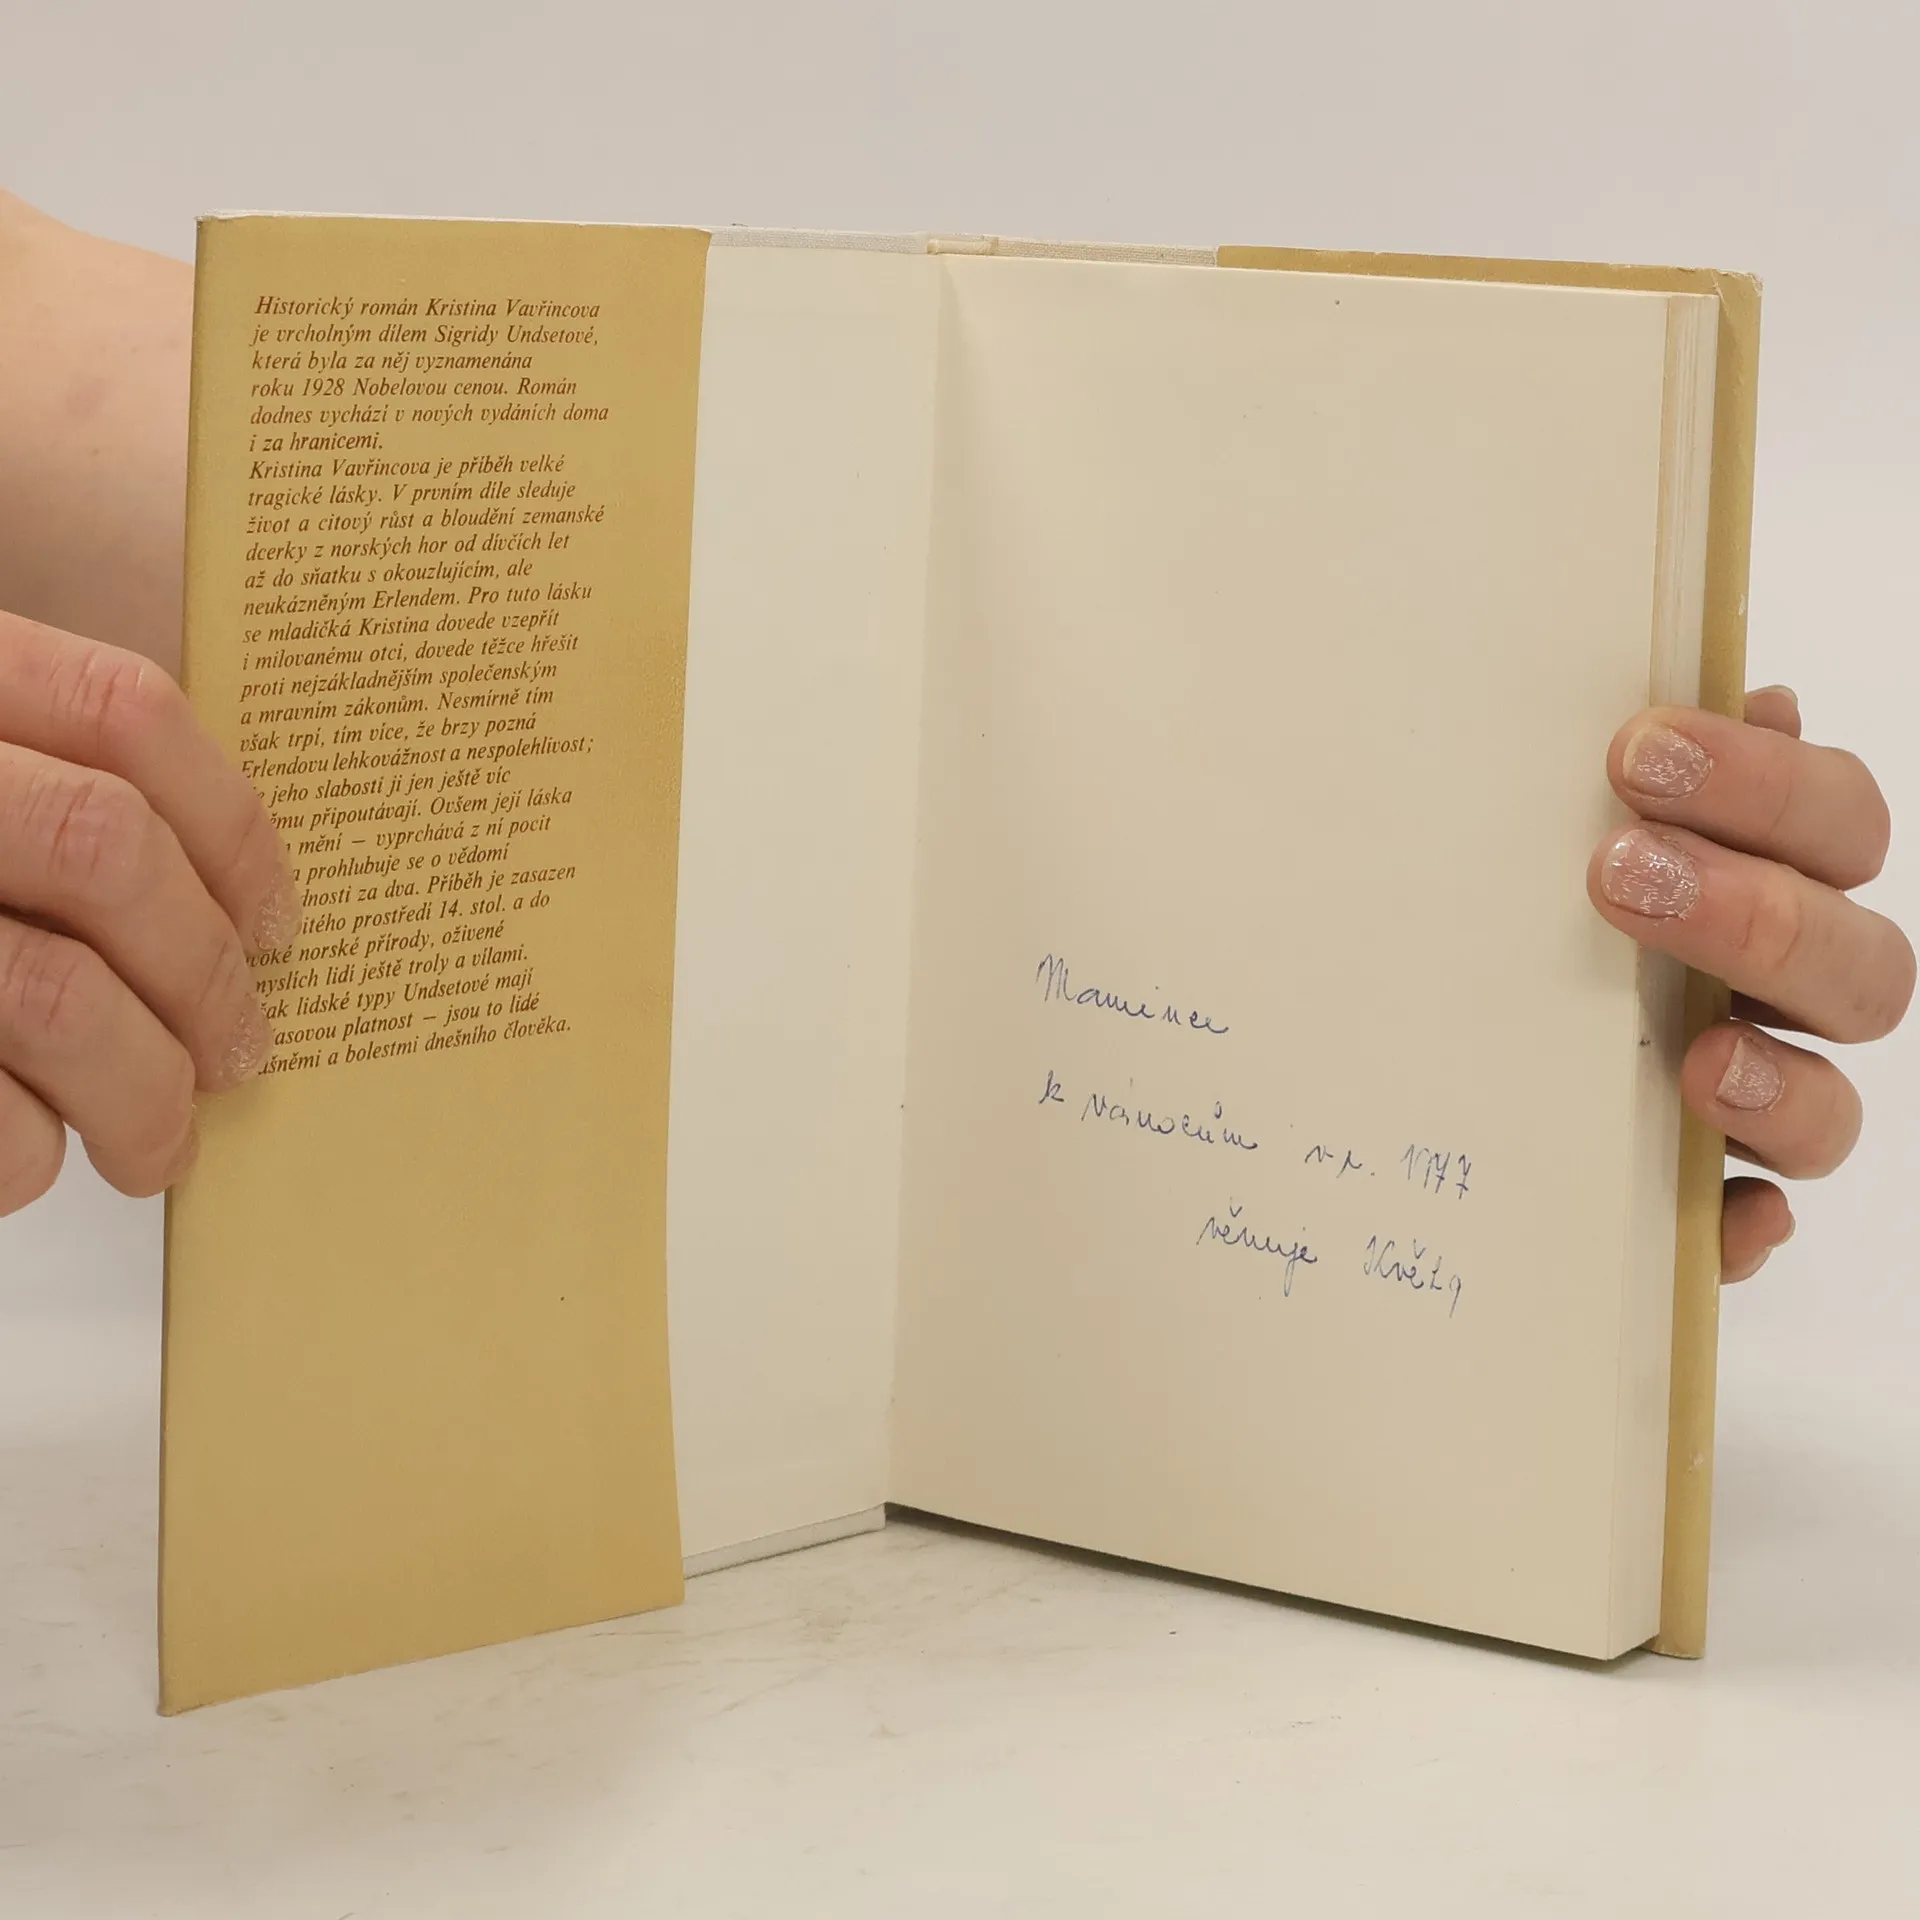 Historický román Kristina Vavřincova
je vrcholným dílem Sigridy Undsetové,
která byla za něj vyznamenána
roku 1928 Nobelovou cenou. Román
dodnes vychází v nových vydáních doma
i za hranicemi.
Kristina Vavřincova je příběh velké
tragické lásky. V prvním díle sleduje
život a citový růst a bloudění zemanské
dcerky z norských hor od dívčích let
až do sňatku s okouzlujícím, ale
neukázněným Erlendem. Pro tuto lásku
se mladičká Kristina dovede vzepřít
i milovanému otci, dovede těžce hřešit
proti nejzákladnějším společenským
a mravním zákonům. Nesmírně tím
však trpí, tím více, že brzy pozná
Erlendovu lehkovážnost a nespolehlivost;
jeho slabosti ji jen ještě víc
připoutávají. Ovšem její láska
mění — vyprchává z ní pocit
a prohlubuje se o vědomí
za dva. Příběh je zasazen
prostředí 14. stol. a do
norské přírody, oživené
lidí ještě troly a vílami.
lidské typy Undsetové mají
platnost — jsou to lidé
a bolestmi dnešního člověka.
Mamince
k vánocům v r. 1977
věnuje Květa